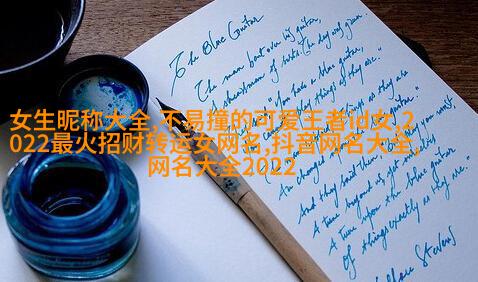 The Blue Guitar
The man bent over his guitar,
A shearsman of sorts. The day was green.
They said, "You have a blue guitar,
You do not play things as they are."
女生昵称大全,不易撞的可爱王者id女,2
022最火招财转运女网名,抖音网名大全,
网名大全2022
And they said then,
A tune beyond us, yet ourselves,
A tune upon the blue guitar
Of things exactly as they are."
Wallace Stevens